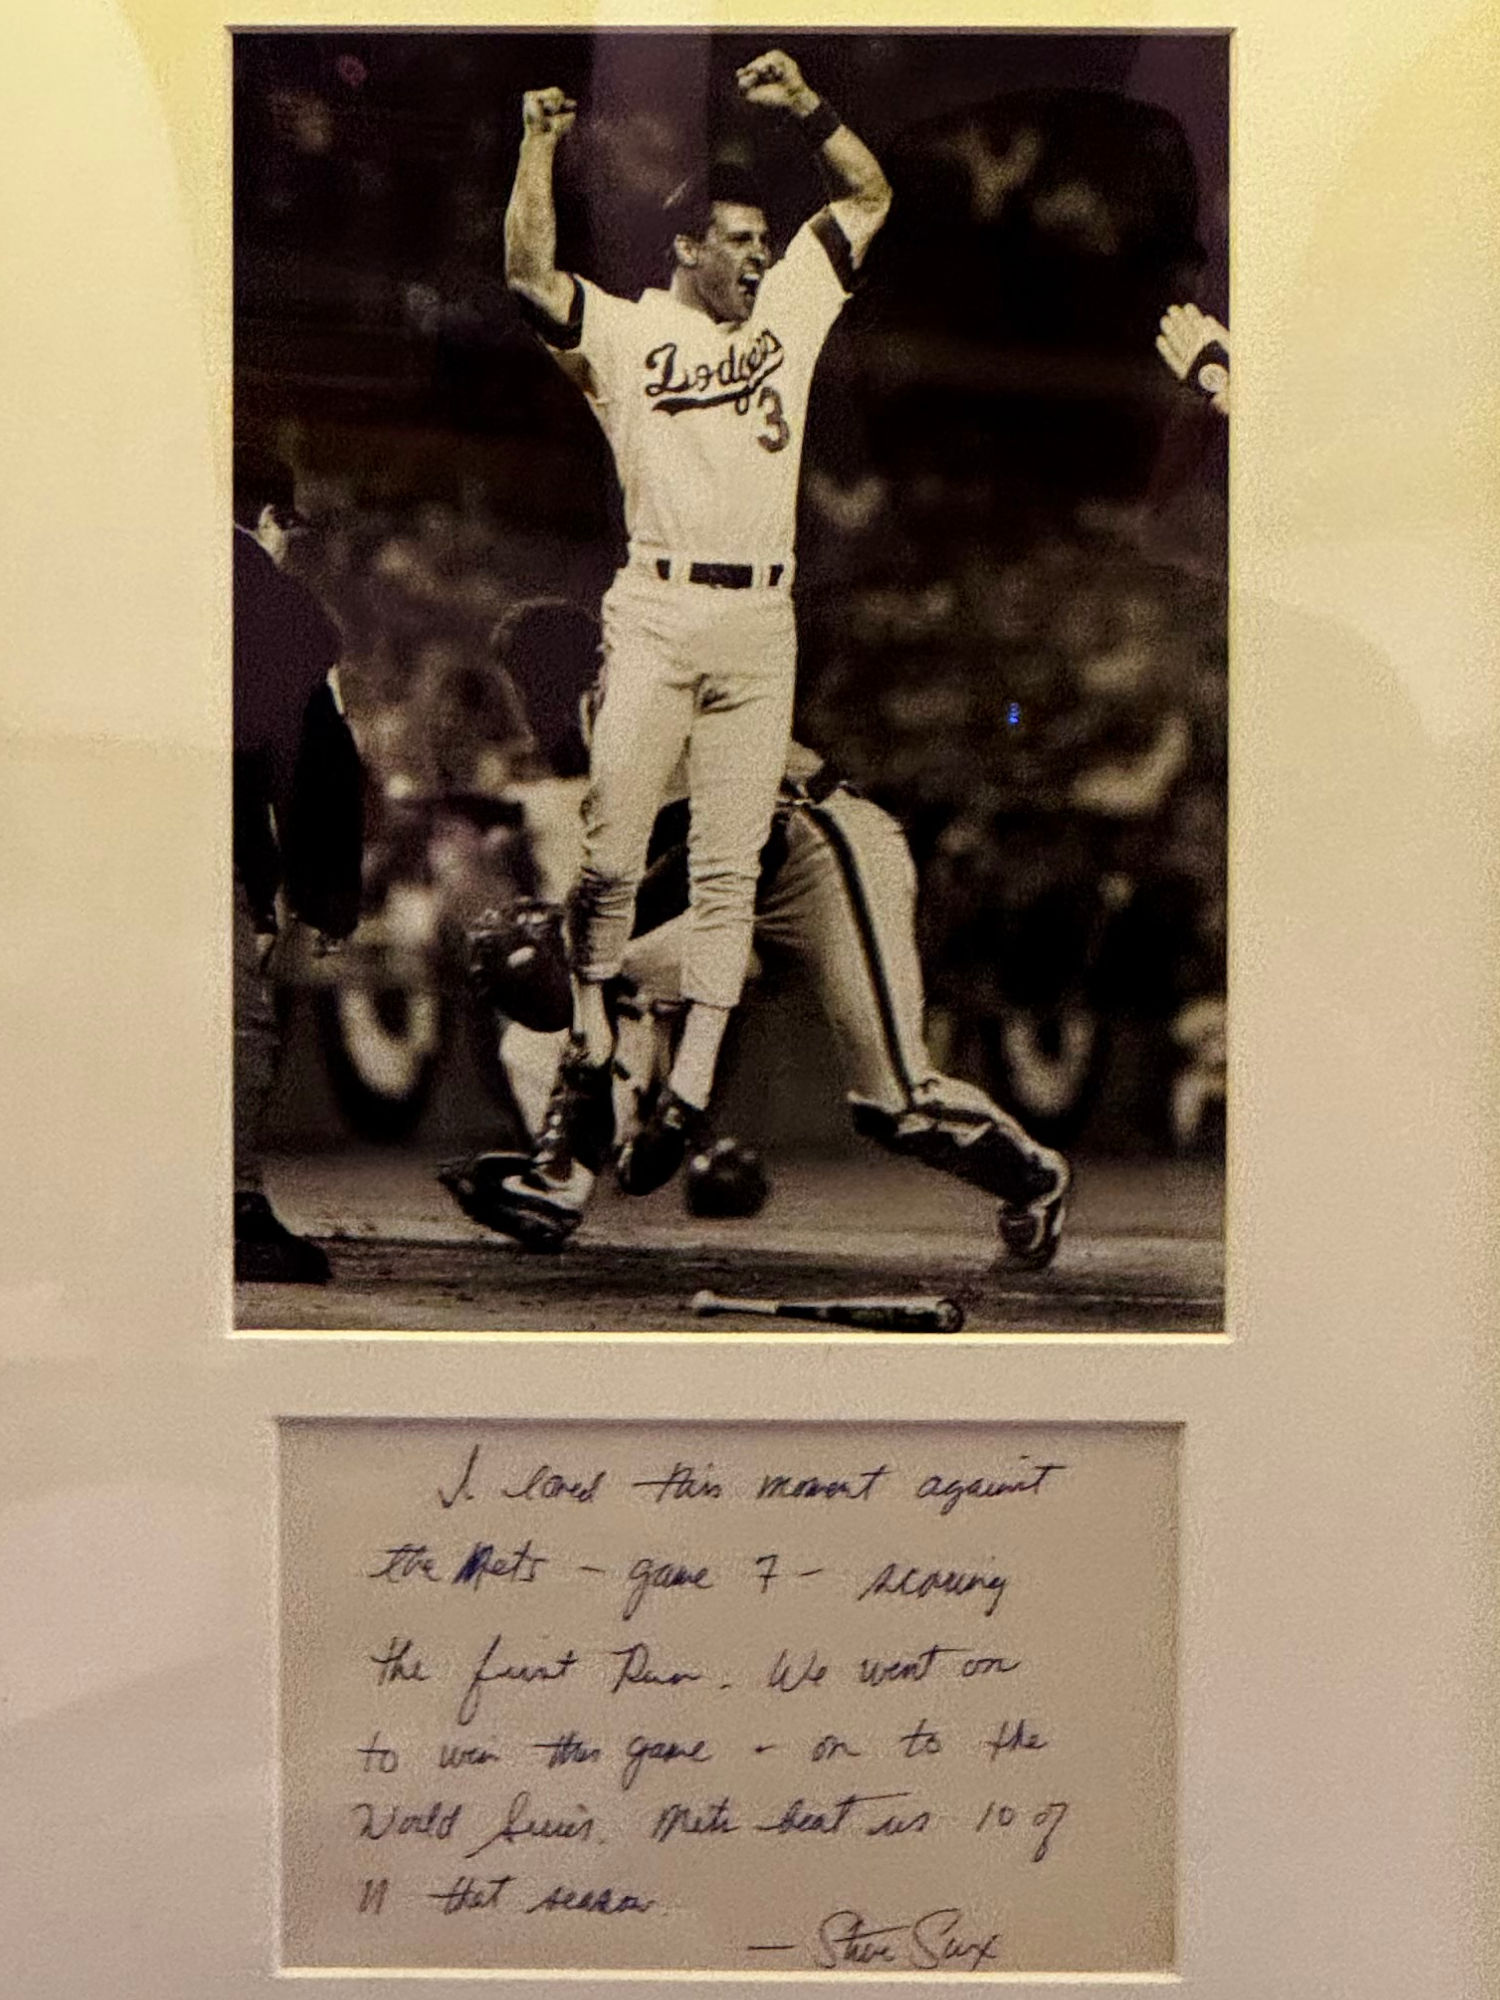 Dodgers
3
I loved this moment against
the Mets - game 7 - scoring
the first Run. We went on
to win this game - on to the
World Series. Mets beat us 10 of
11 that season.
— Steve Sax